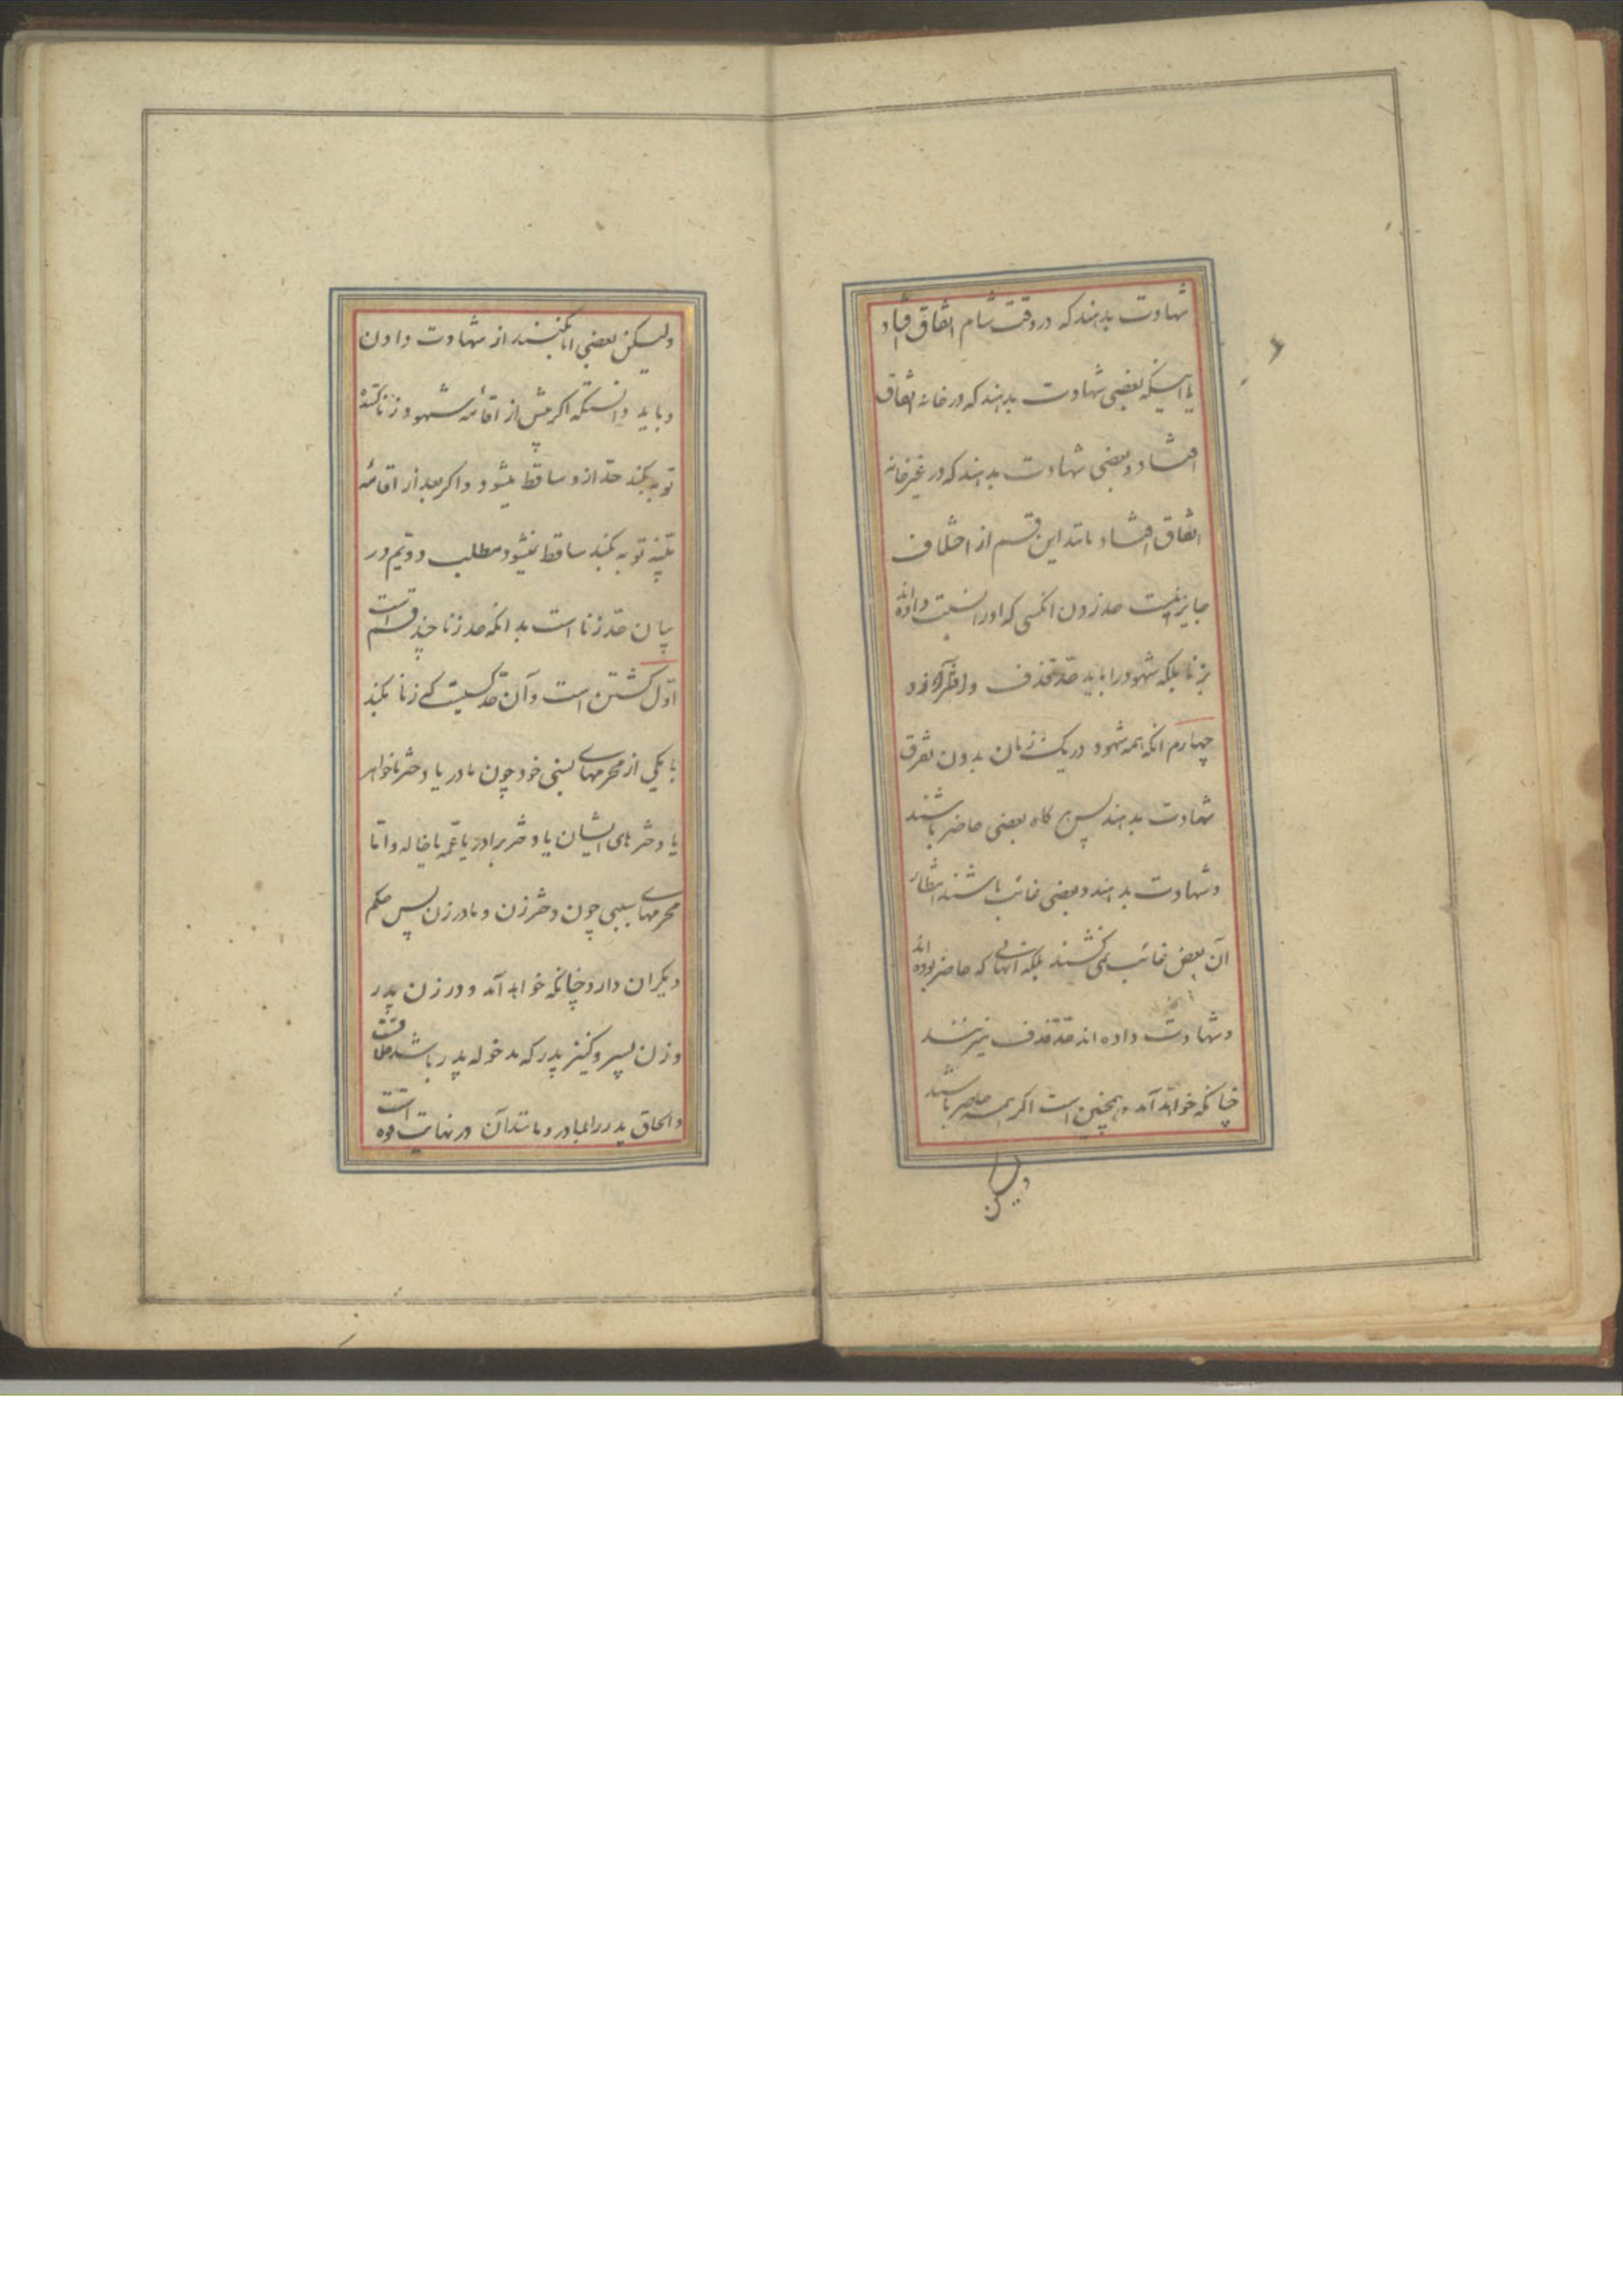 شهادت بدهند که در وقت شام اتفاق افتاد
یا اینکه بعضی شهادت بدهند که در خانه اتفاق
افتاد و بعضی شهادت بدهند که در غیر خانه
اتفاق افتاد مانند این قسم از اختلاف
جایز نیست حد زدن انکسی که او را نسبت داده اند
بزنا بلکه شهود را باید حد قذف و افترا زد
چهارم انکه همه شهود در یک زمان بدون تفرق
شهادت بدهند پس هر کاه بعضی حاضر باشند
و شهادت بدهند و بعضی غائب باشند انتظار
آن بعض غائب نمی کشند بلکه آنهائی که حاضر بوده اند
و شهادت داده اند حد قذف میزنند
چنانکه خواهد آمد و همچنین است اکر همه حاضر باشند
ولیکن
ولیکن بعضی ابا بکنند از شهادت دادن
و باید دانستکه اکر پیش از اقامه شهود زناکننده
توبه بکند حد از و ساقط میشود و اکر بعد از اقامه
بینه توبه بکند ساقط نمیشود مطلب دویم در
بیان حد زنا است بدانکه حد زنا چند قسم است
اول کشتن است و آن حد کسیست که زنا بکند
با یکی از محرمهای نسبی خود چون مادر یا دختر یا خواهر
یا دختر های ایشان یا دختر برادر یا عمه یا خاله و اما
محرمهای سببی چون دختر زن و مادر زن پس حکم
دیکران دارد چنانکه خواهد آمد و در زن پدر
و زن پسر و کنیز پدر که مدخوله پدر باشد خلافست
و الحاق پدر رضاعی و مانند آن در نهایت قوه است